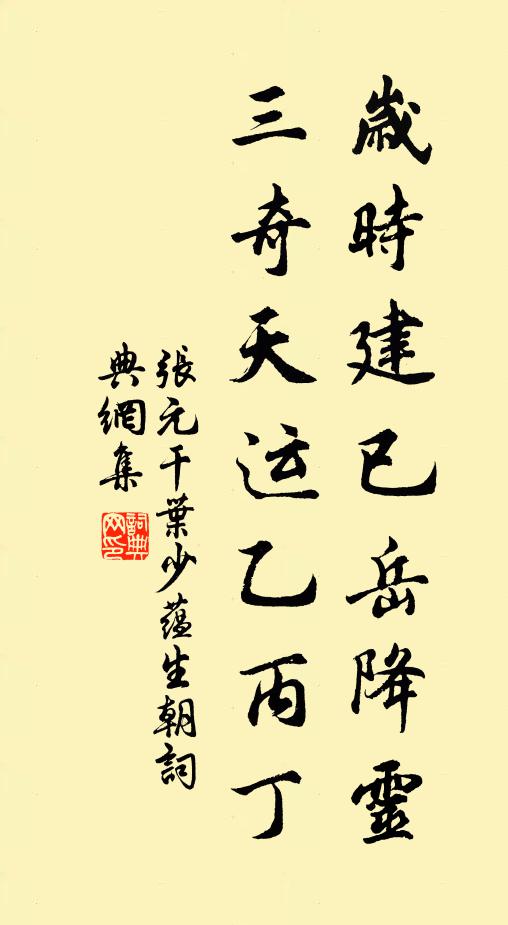 歲時建巳岳降靈
三奇天运乙丙丁
張元干葉少蘊生朝詞
典網集
詞典網印